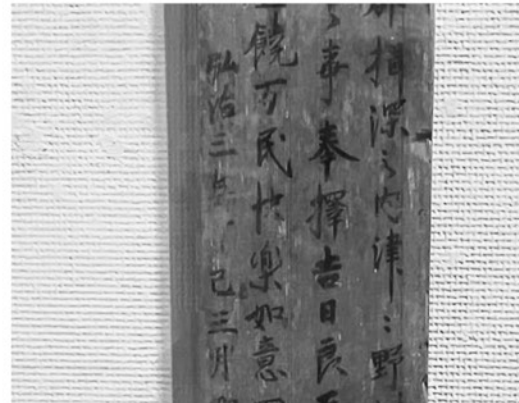 揖深之内津〻野
之事奉擇吉日良
饒万民快楽如意
弘治三年巳三月